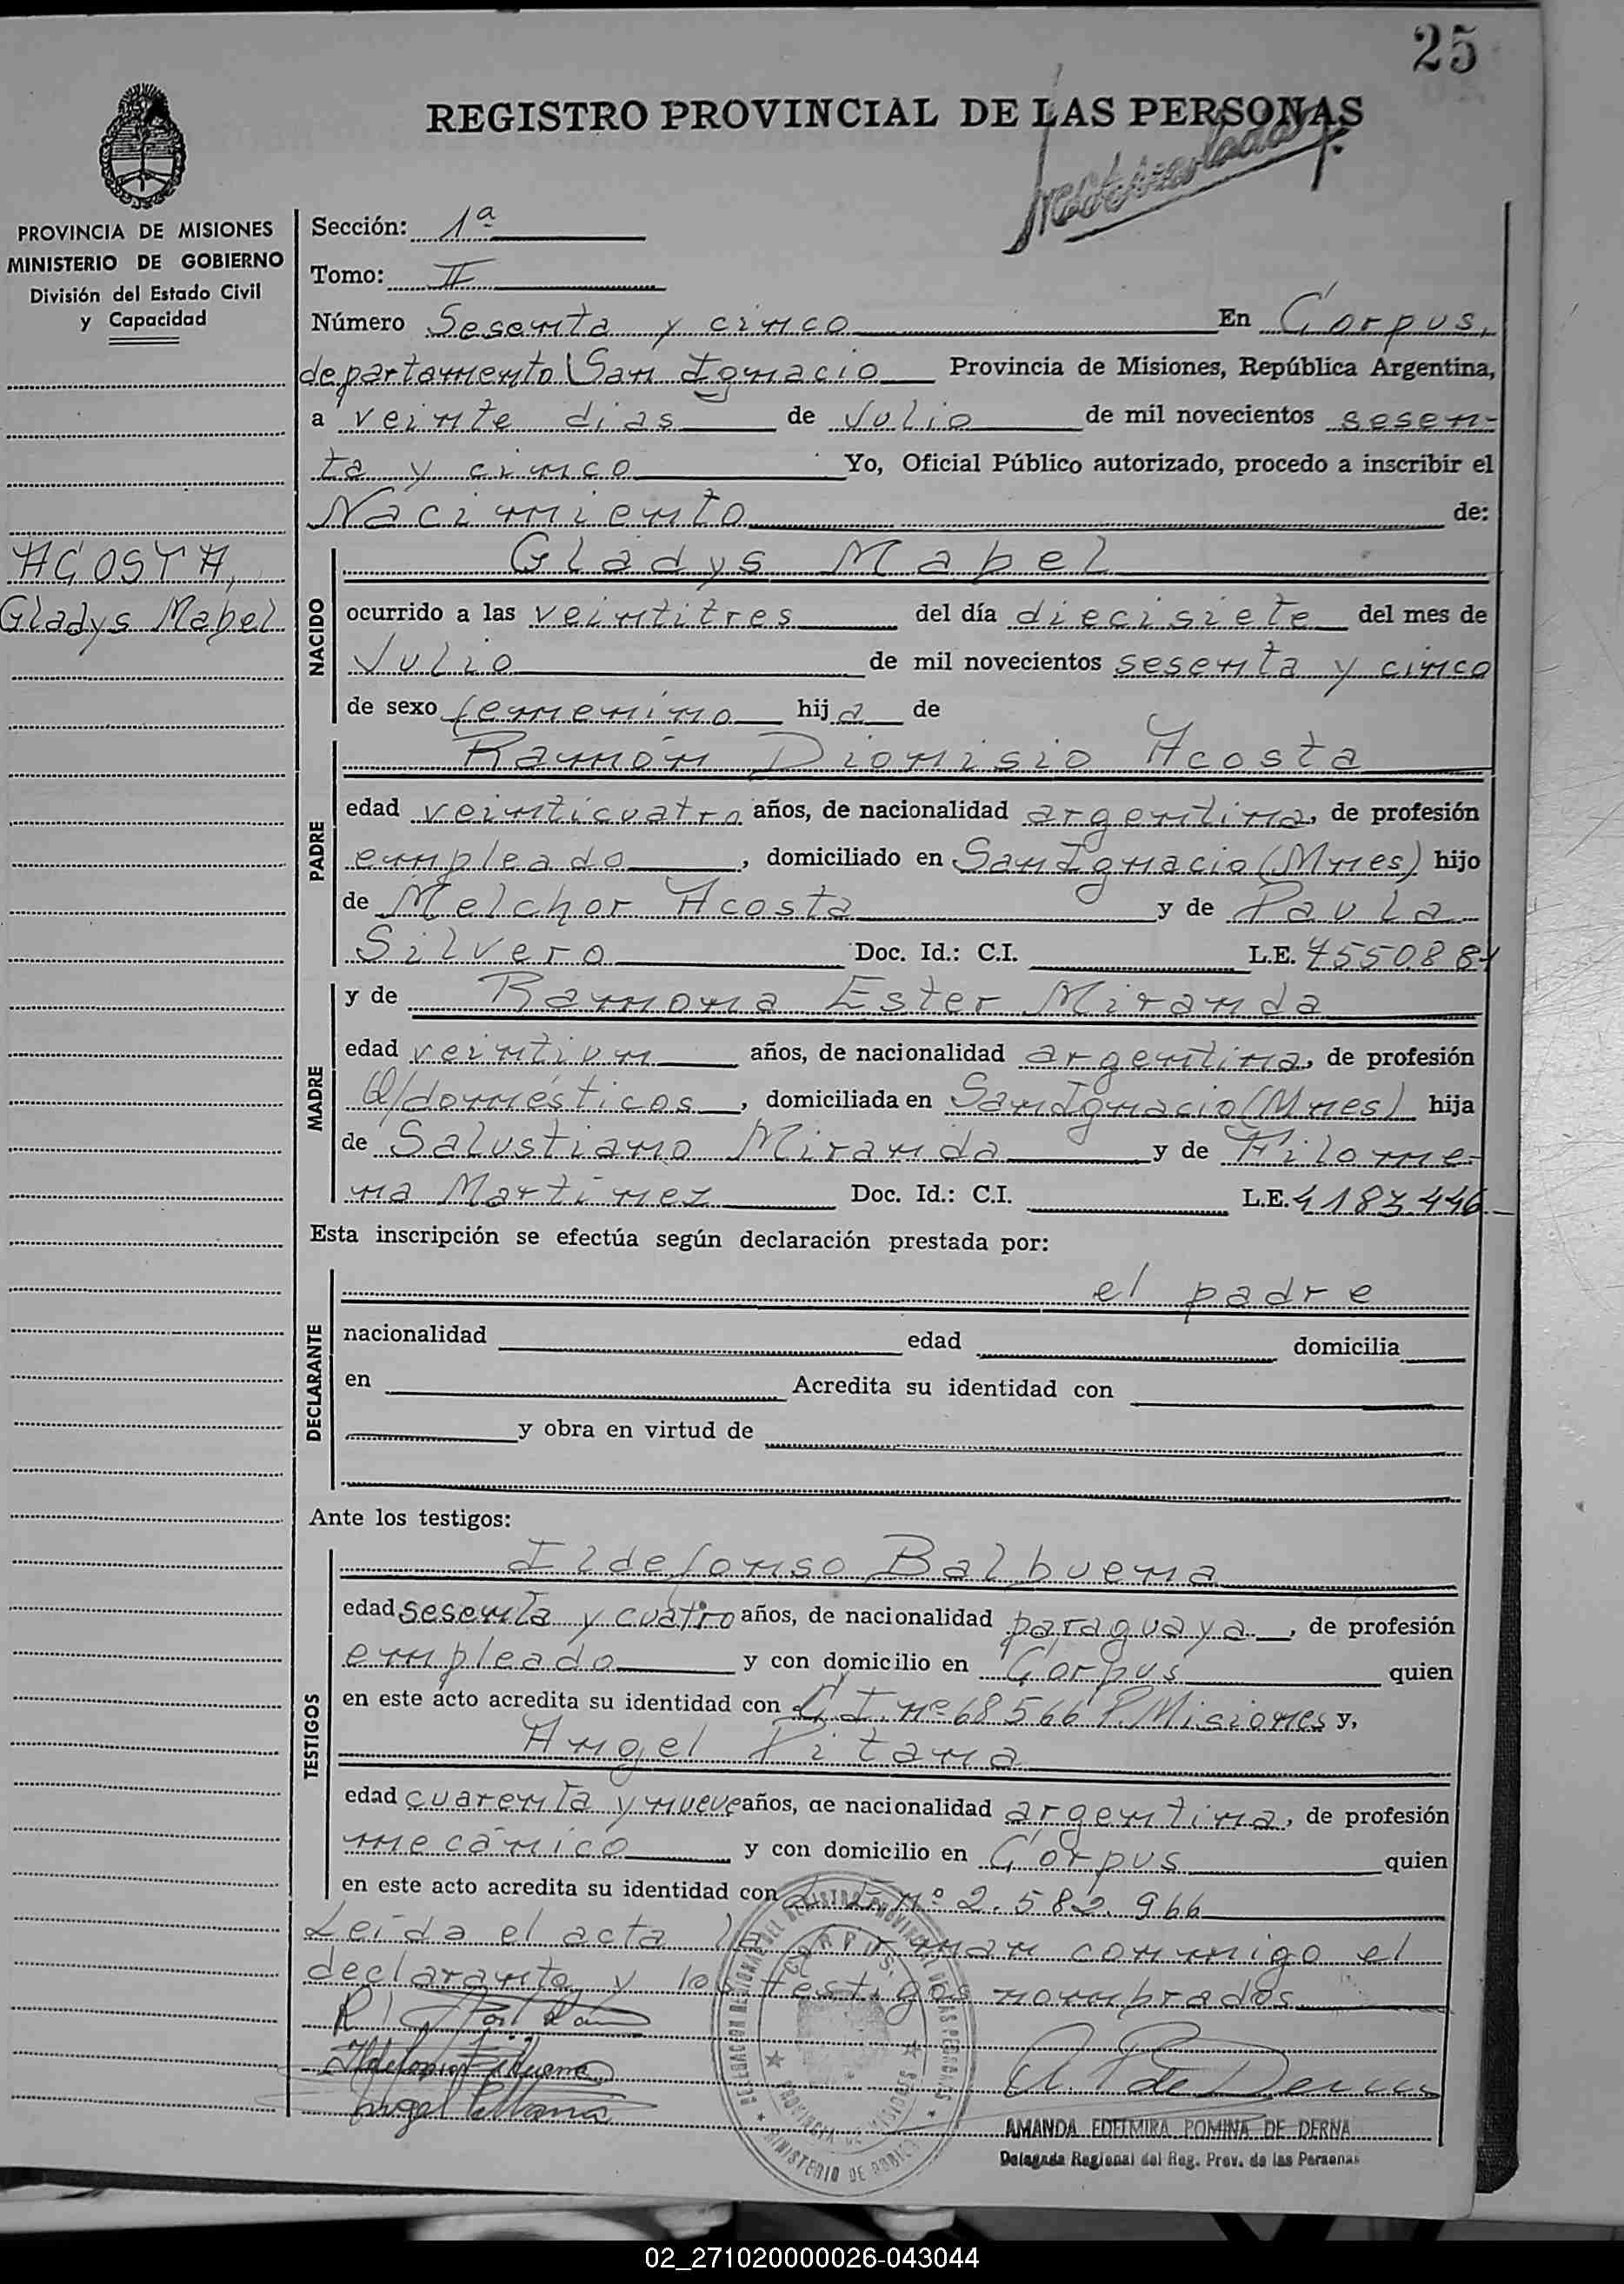 25
REGISTRO PROVINCIAL DE LAS PERSONAS
PROVINCIA DE MISIONES
MINISTERIO DE GOBIERNO
División del Estado Civil
y Capacidad
ACOSTA,
Gladys Mabel
Sección: 1ª
Tomo: II
Número Sesenta y cinco En Corpus,
departamento San Ignacio Provincia de Misiones, República Argentina,
a veinte dias de Julio de mil novecientos sesen-
ta y cinco Yo, Oficial Público autorizado, procedo a inscribir el
Nacimiento de:
NACIDO
Gladys Mabel
ocurrido a las veintitres del día diecisiete del mes de
Julio de mil novecientos sesenta y cinco
de sexo femenino hija de
PADRE
Ramón Dionisio Acosta
edad veinticuatro años, de nacionalidad argentina, de profesión
empleado, domiciliado en San Ignacio (Mnes) hijo
de Melchor Acosta y de Paula
Silvero Doc. Id.: C.I. L.E. 7550881
MADRE
y de Ramona Ester Miranda
edad veintiun años, de nacionalidad argentina, de profesión
Q/domésticos, domiciliada en San Ignacio (Mnes) hija
de Salustiano Miranda y de Filome-
na Martinez Doc. Id.: C.I. L.E. 4183.446
Esta inscripción se efectúa según declaración prestada por:
DECLARANTE
el padre
nacionalidad edad domicilia
en Acredita su identidad con
y obra en virtud de
Ante los testigos:
TESTIGOS
Ildefonso Balbuena
edad sesenta y cuatro años, de nacionalidad paraguaya, de profesión
empleado y con domicilio en Corpus quien
en este acto acredita su identidad con C.I. nº 68566 P. Misiones y,
Angel Pitana
edad cuarenta y nueve años, de nacionalidad argentina, de profesión
mecánico y con domicilio en Corpus quien
en este acto acredita su identidad con L.E. nº 2.582.966
Leída el acta la firman conmigo el
declarante y los testigos nombrados
AMANDA EDELMIRA POMINA DE DERNA
Delegada Regional del Reg. Prov. de las Personas
DELEGACION REGIONAL DEL REGISTRO PROVINCIAL DE LAS PERSONAS
CORPUS
PROVINCIA DE MISIONES
MINISTERIO DE
02_271020000026-043044